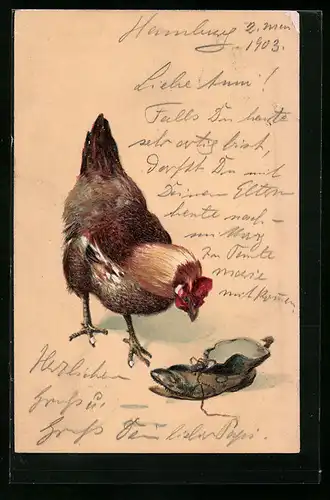 Hamburg 2. Mai
1903.
Liebe Anni!
Falls Du heute
sehr artig bist,
darfst Du mit
Deinen Eltern
heute nach-
mittag
zu Tante
Marie
mitkommen
Herzlichen
Gruß u.
Gruß Dein lieber Papi.